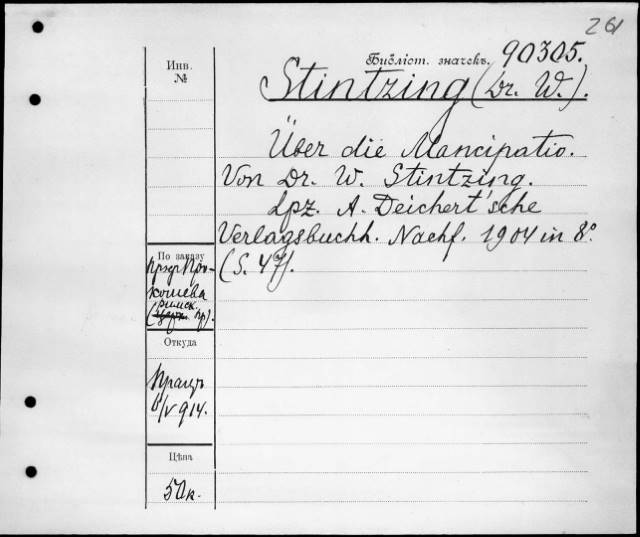 261
Инв.
№
Библіот. значекъ. 90305.
Stintzing (Dr. W.).
Über die Mancipatio.
Von Dr. W. Stintzing.
Lpz. A. Deichert'sche
Verlagsbuchh. Nachf. 1904 in 8º.
(S. 47).
По заказу
Прэф Про-
кошева
римск.
(церк. пр).
Откуда
V 914.
Цѣна
50к.